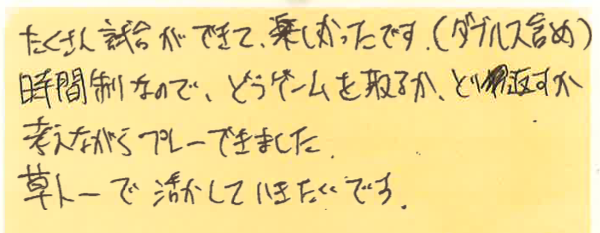 たくさん試合ができて、楽しかったです。(ダブルス含め)
時間制なので、どうゲームを取るか、どう返すか
考えながらプレーできました。
草トーで活かしていきたいです。